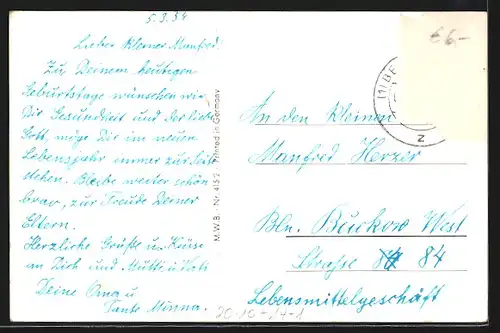 5.3.54
Lieber kleiner Manfred!
Zu Deinem heutigen
Geburtstage wünschen wir
Dir Gesundheit und der liebe
Gott möge Dir im neuen
Lebensjahr immer zur Seite
stehen. Bleibe weiter schön
brav, zur Freude Deiner
Eltern.
Herzliche Grüße u. Küsse
an Dich und Mutti u. Vati
Deine Oma u
Tante Minna.
M.W.B. Nr. 4152 Printed in Germany
€6,-
(1) BE
z
An den kleinen
Manfred Herzer
Bln. Buckow West
Straße 84 84
Lebensmittelgeschäft
20-10-14-1